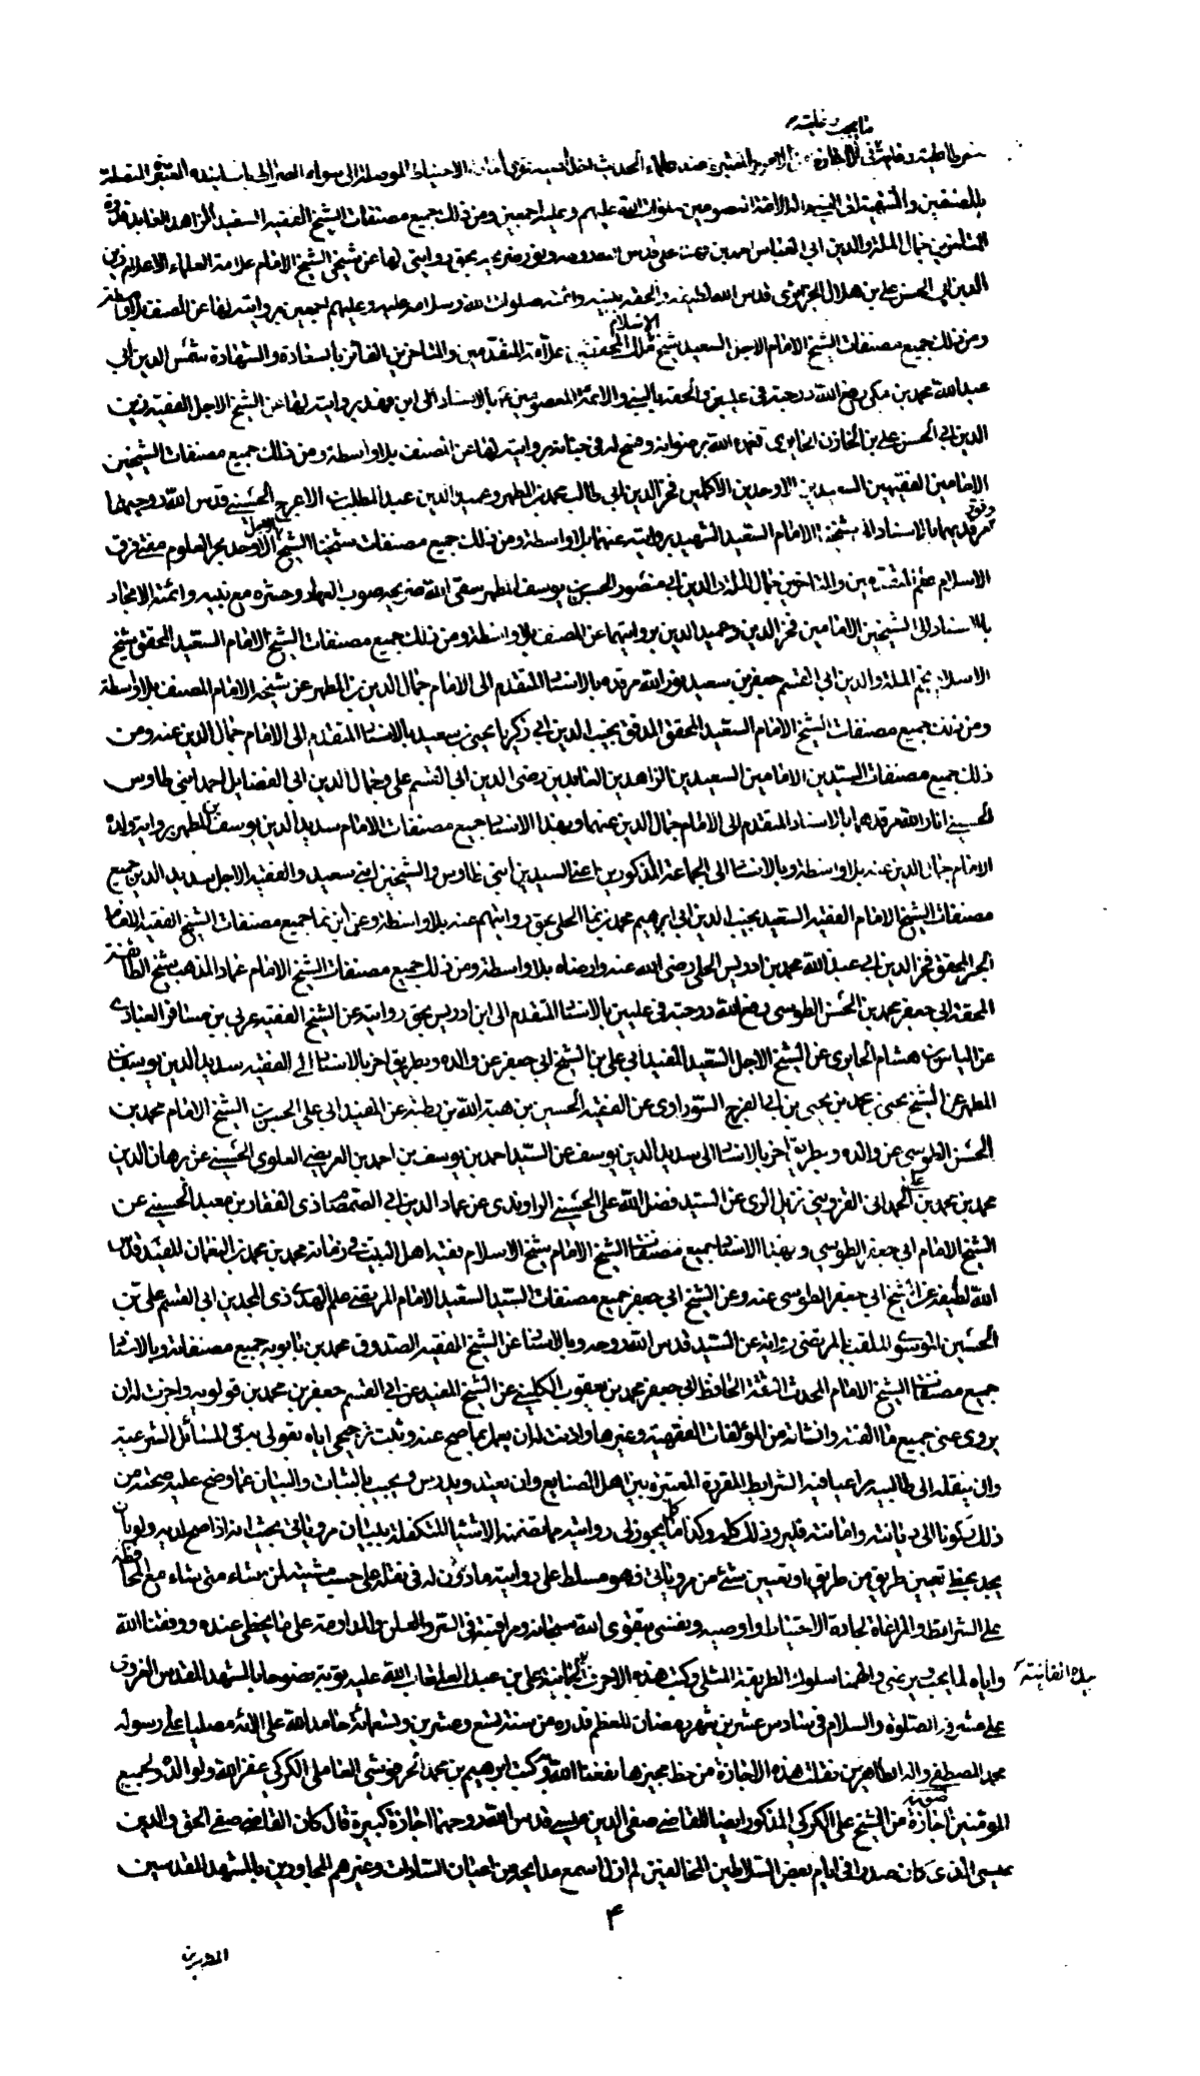 بالمصنفين والمنتهية الى النبي والائمة المعصومين صلوات الله عليهم وعليه اجمعين ومن ذلك جميع مصنفات الشيخ الفقيه السعيد الزاهد العابد قدوة
المتأخرين جمال الملة والدين ابي العباس احمد بن فهد بحق روايتي لها عن شيخي الشيخ الامام علامة العلماء الاعلام زين
الدين ابي الحسن علي بن هلال الجزائري قدس الله لطيفه والحقه بنبيه وائمته صلوات الله وسلامه عليه وعليهم اجمعين بروايته لها عن المصنف بلا واسطة
ومن ذلك جميع مصنفات الشيخ الامام الاجل السعيد شيخ الاسلام ملك المحققين علامة المتقدمين والمتاخرين الفائز بالسعادة والشهادة شمس الدين ابي
عبد الله محمد بن مكي رفع الله درجته في عليين والحقه بالنبي والائمة المعصومين بالاسناد الى ابن فهد بروايته لها عن الشيخ الاجل الفقيه زين
الدين ابي الحسن علي بن الخازن الحايري تغمده الله برضوانه بروايته لها عن المصنف بلا واسطة ومن ذلك جميع مصنفات الشيخين
الامامين الفقيهين السعيدين الاوحدين الاكملين فخر الدين ابي طالب محمد بن المطهر وعميد الدين عبد المطلب الاعرج الحسيني قدس الله روحيهما
مرقديهما بالاسناد الى شيخنا الامام السعيد الشهيد بروايته عنهما بلا واسطة ومن ذلك جميع مصنفات شيخنا الشيخ الاجل الاوحد بحر العلوم مفتي فرق
الاسلام علم المتقدمين والمتاخرين جمال الملة والدين ابي منصور الحسن بن يوسف المطهر سقى الله ضريحه صوب العهاد وحشره مع نبيه وائمته الامجاد
بالاسناد الى الشيخين الامامين فخر الدين وعميد الدين بروايتهما عن المصنف بلا واسطة ومن ذلك جميع مصنفات الشيخ الامام السعيد المحقق شيخ
الاسلام نجم الملة والدين ابي القسم جعفر بن سعيد نور الله مرقده بالاسناد المتقدم الى الامام جمال الدين بن المطهر عن شيخه الامام المصنف بلا واسطة
ومن ذلك جميع مصنفات الشيخ الامام السعيد المحقق المدقق نجيب الدين ابي زكريا يحيى بن سعيد بالاسناد المتقدم الى الامام جمال الدين عنه ومن
ذلك جميع مصنفات السيدين الامامين السعيدين الزاهدين العابدين رضى الدين ابي القسم علي وجمال الدين ابي الفضايل احمد ابني طاوس
الحسيني انار الله مرقدهما بالاسناد المتقدم الى الامام جمال الدين عنهما وبهذا الاسناد جميع مصنفات الامام سديد الدين يوسف بن المطهر برواية ولده
الامام جمال الدين عنه بلا واسطة وبالاسناد الى الجماعة المذكورين اعني السيدين ابني طاوس والشيخين ابني سعيد والفقيه الاجل سديد الدين جميع
مصنفات الشيخ الامام الفقيه السعيد نجيب الدين ابي ابرهيم محمد بن نما الحلي بحق روايتهم عنه بلا واسطة وعن ابن نما جميع مصنفات الشيخ الفقيه العلامة
الحبر المحقق فخر الدين ابي عبد الله محمد بن ادريس الحلي رضى الله عنه وارضاه بلا واسطة ومن ذلك جميع مصنفات الشيخ الامام عماد المذهب شيخ الطائفة
المحقة ابي جعفر محمد بن الحسن الطوسي رفع الله درجته في عليين بالاسناد المتقدم الى ابن ادريس بحق روايته عن الشيخ الفقيه عربي بن مسافر العبادي
عن الياس بن هشام الحايري عن الشيخ الاجل السعيد المفيد ابي علي بن الشيخ ابي جعفر عن والده وبطريق اخر بالاسناد الى الفقيه سديد الدين يوسف بن
المطهر عن الشيخ يحيى بن محمد بن يحيى بن ابي الفرج السوراوي عن الفقيه الحسين بن هبة الله بن رطبة عن المفيد ابي علي الحسن بن الشيخ الامام محمد بن
الحسن الطوسي عن والده وبطريق اخر بالاسناد الى سديد الدين يوسف عن السيد احمد بن يوسف بن احمد بن العريضي العلوي الحسيني عن برهان الدين
محمد بن محمد بن علي الحمداني القزويني نزيل الري عن السيد فضل الله علي الحسني الراوندي عن عماد الدين ابي الصمصام ذي الفقار بن معبد الحسيني عن
الشيخ الامام ابي جعفر الطوسي وبهذا الاسناد جميع مصنفات الشيخ الامام شيخ الاسلام فقيه اهل البيت في زمانه محمد بن محمد بن النعمان المفيد قدس
الله لطيفه عن الشيخ ابي جعفر الطوسي عنه وعن الشيخ ابي جعفر جميع مصنفات السيد السعيد الامام المرتضى علم الهدى ذي المجدين ابي القسم علي بن
الحسين الموسوي الملقب بالمرتضى روايته عن السيد قدس الله روحه وبالاسناد عن الشيخ المفيد الصدوق محمد بن بابويه جميع مصنفاته وبالاسناد
جميع مصنفات الشيخ الامام المحدث الثقة الحافظ ابي جعفر محمد بن يعقوب الكليني عن الشيخ المفيد عن ابي القسم جعفر بن محمد بن قولويه واجزت له ان
يروي عني جميع ما الفته وانشأته من المؤلفات الفقهية وغيرها واذنت له ان يعمل بما صح عنه وثبت ترجيحي اياه بقولي في المسائل الشرعية
وان ينقله الى طالبيه مراعيا فيه الشرايط المقررة المعتبرة بين اهل الصنايع وان يعيد ويدرس ويجيب بالثبات والبيان عما وضح عليه صحته من
ذلك ركونا الى ديانته وامانته فليرو ذلك كله وكذا كل ما يجوز لي روايته مما تضمنه الاثبات المتكفلة ببيان مروياتي بحيث انه اذا صح لديه ولو بان
يجد بخطي تعيين طريق من طريق او تعيين شئ من مروياتي فهو مسلط على روايته ماذون له في نقله على حسب مشيته لمن يشاء متى يشاء مع المحافظة
على الشرائط والمراعاة لجادة الاحتياط واوصيه ونفسي بتقوى الله سبحانه ومراقبته في السر والعلن والمداومة على ما يحظي عنده ووفقنا الله
واياه لما يحب ويرضى والهمنا سلوك الطريقة المثلى وكتب هذه الاحرف بيده الفانية الجانية علي بن عبد العالي تاب الله عليه توبة نصوحا بالمشهد المقدس الغروي
على مشرفه الصلوة والسلام في سادس عشرين شهر رمضان المعظم قدره من سنة تسع وعشرين وتسعمائة حامدا لله على الائه مصليا على رسوله
محمد المصطفى واله الطاهرين نقلت هذه الاجازة من خط مجيزها نفعنا الله وكتب ابرهيم بن محمد الحرفوشي العاملي الكركي عفر الله له ولوالديه ولجميع
المؤمنين صورة اجازة من الشيخ علي الكركي المذكور ايضا للقاضي صفي الدين عيسى قدس الله روحهما اجازة كبيرة قال كان القاضي صفي الحق والدين
عيسى الذي كان صدرا في ايام بعض السلاطين المخالفين لم ازل اسمع مدايحه من اعيان السادات وغيرهم المجاورين بالمشهد المقدسين
۴